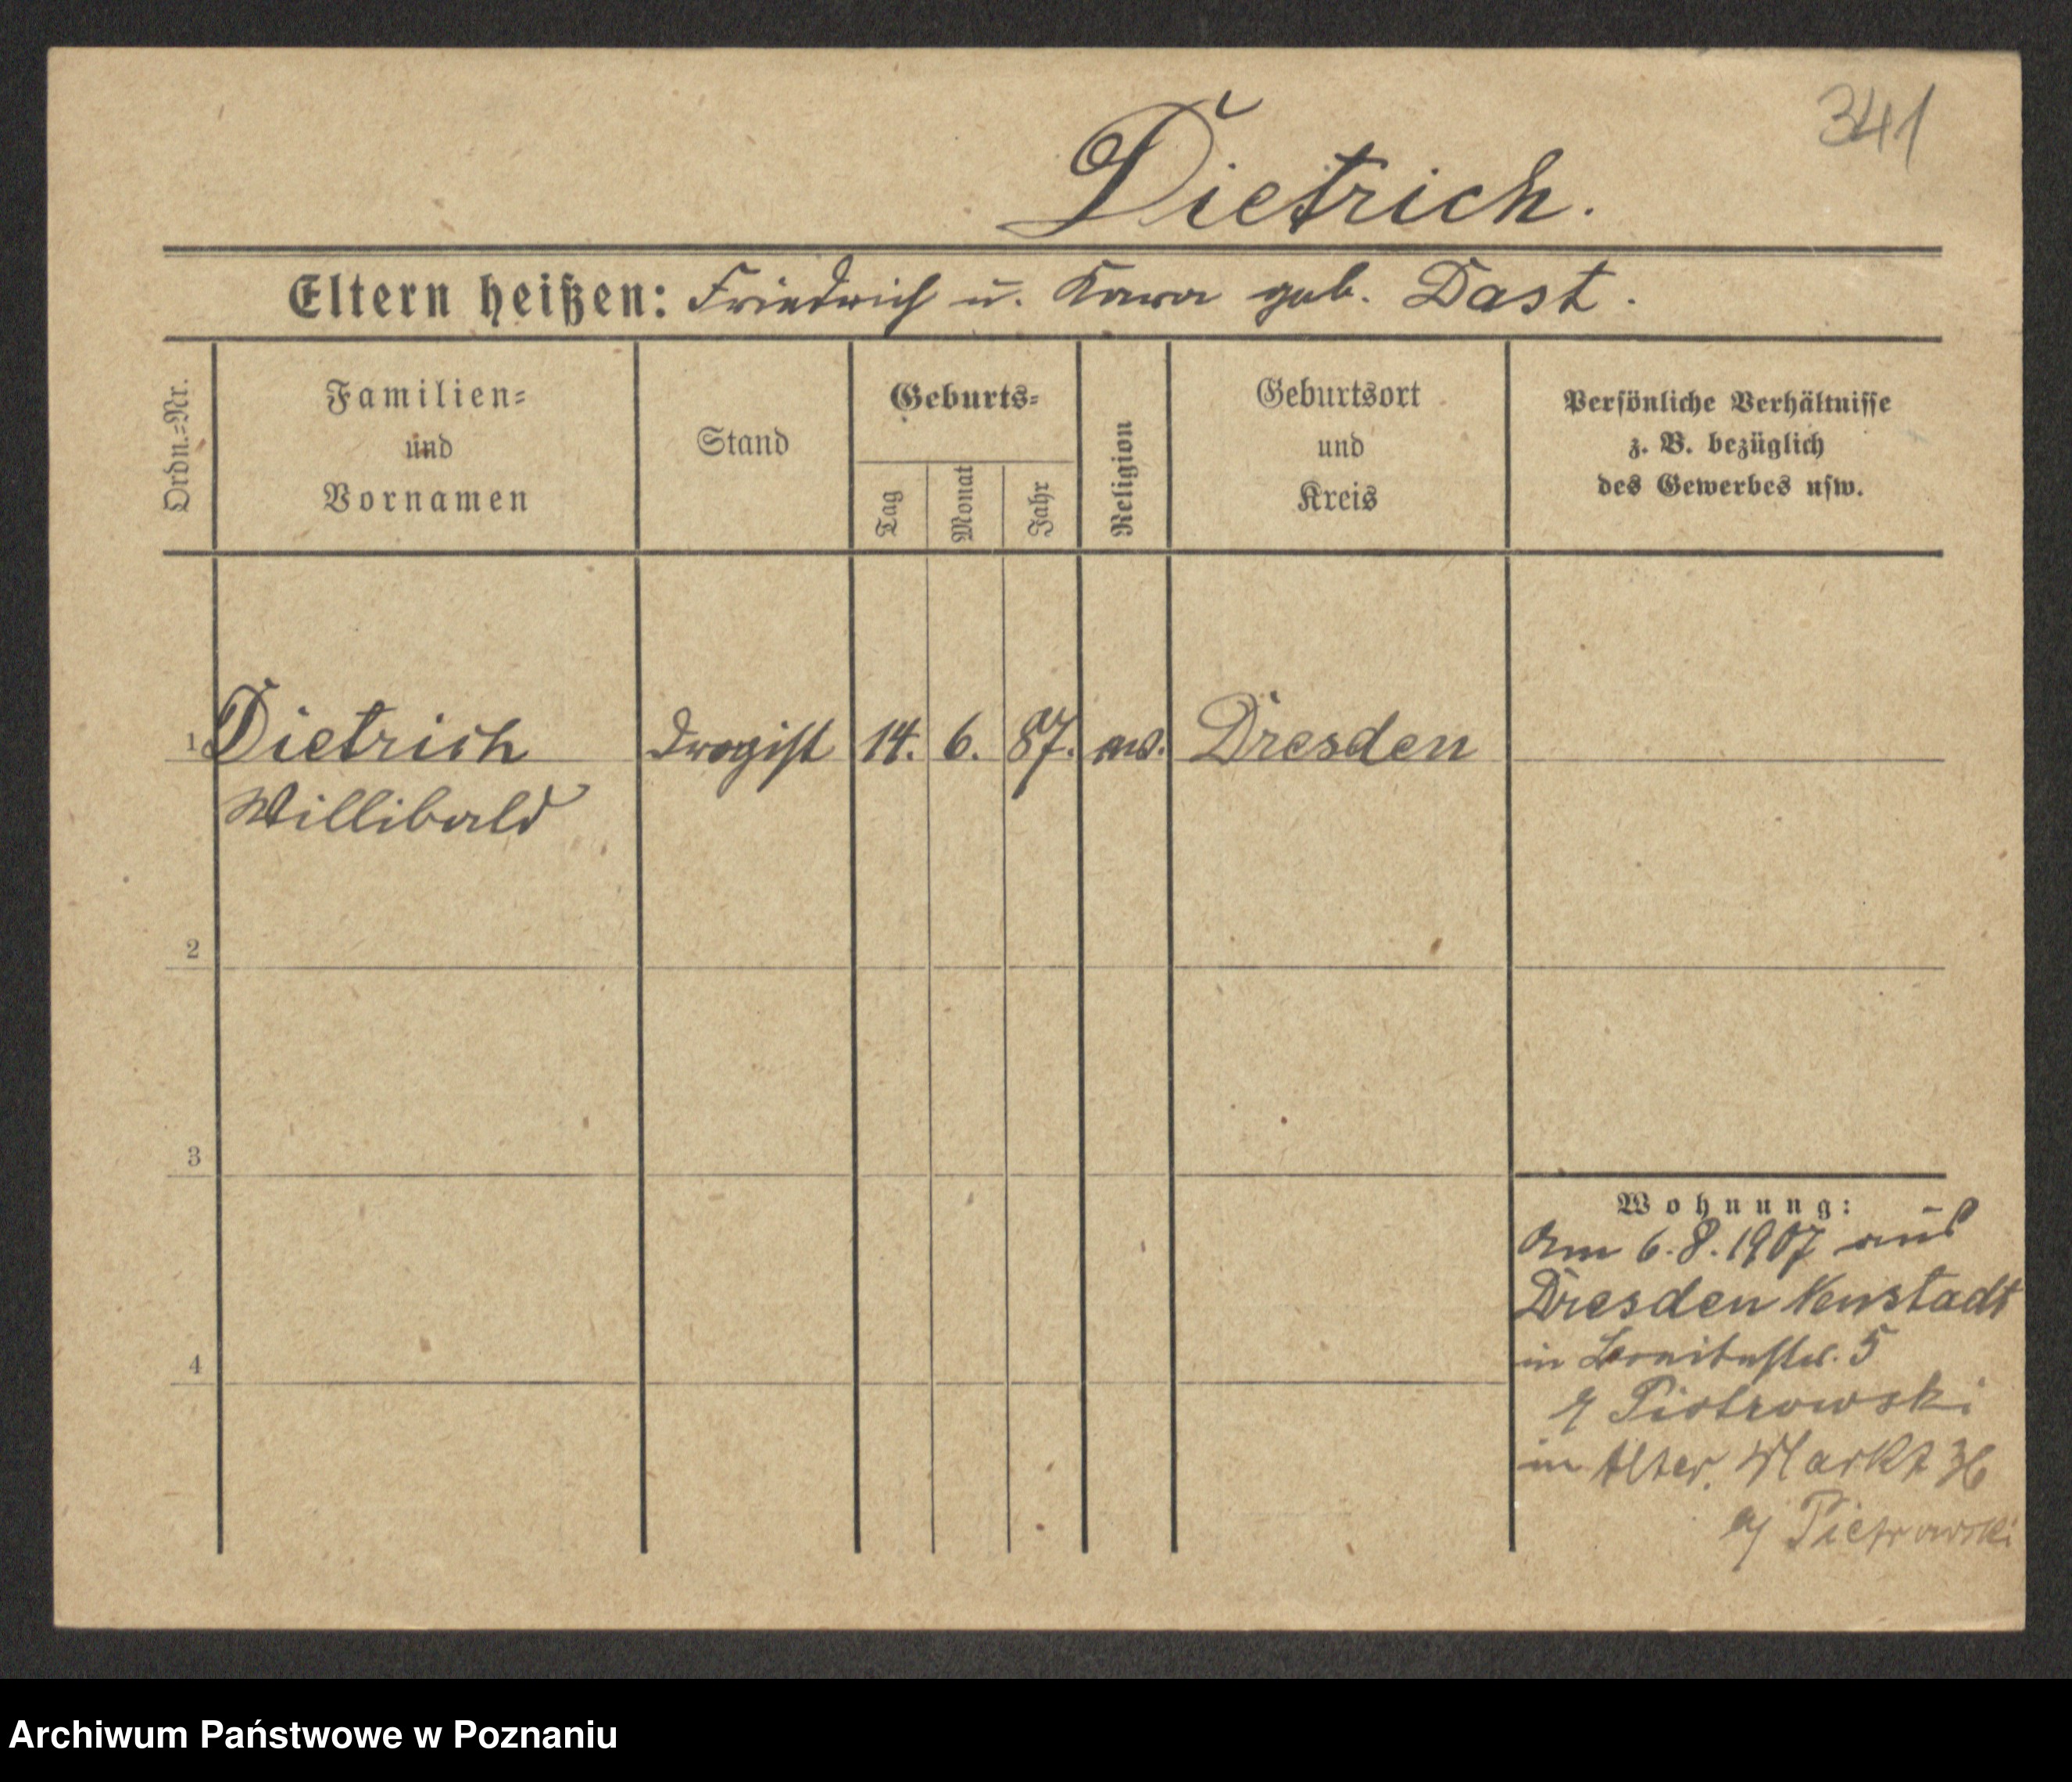 341
Dietrich.
Eltern heißen: Friedrich u. geb. Dast.
Ordn.=Nr.
Familien=
und
Vornamen
Stand
Geburts=
Tag
Monat
Jahr
Religion
Geburtsort
und
Kreis
Persönliche Verhältnisse
z. B. bezüglich
des Gewerbes usw.
1 Dietrich Drogist 14. 6. 87. Dresden
Willibald
2
3
4
Wohnung:
Am 6.8.1907 aus
Dresden Neustadt
in 5
Piotrowski
in Alter Markt 36
Piotrowski
Archiwum Państwowe w Poznaniu